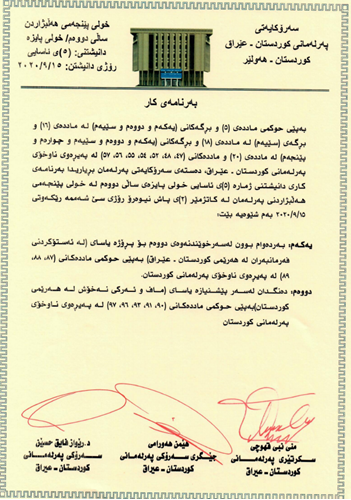 سەرۆکایەتی
پەرلەمانی کوردستان - عێراق
کوردستان - هەولێر
خولی پێنجەمی هەڵبژاردن
ساڵی دووەم/ خولی پایزە
دانیشتنی: (٥)ی ئاسایی
رۆژی دانیشتن: ٢٠٢٠/٩/١٥
بەرنامەی کار
بەپێی حوکمی ماددەی (٥) و بڕگەکانی (یەکەم و دووەم و سێیەم) لە ماددەی (١٦) و
بڕگەی (سێیەم) لە ماددەی (١٨) و بڕگەکانی (یەکەم و دووەم و سێیەم و چوارەم و
پێنجەم) لە ماددەی (٢٠) و ماددەکانی (٤٧، ٤٨، ٥٢، ٥٤، ٥٥، ٥٦، ٥٧) لە پەیڕەوی ناوخۆی
پەرلەمانی کوردستان - عێراق، دەستەی سەرۆکایەتی پەرلەمان بڕیاریدا بەرنامەی
کاری دانیشتنی ژمارە (٥)ی ئاسایی خولی پایزەی ساڵی دووەم لە خولی پێنجەمی
هەڵبژاردنی پەرلەمان لە کاتژمێر (٢)ی پاش نیوەڕۆ رۆژی سێ شەممە رێکەوتی
٢٠٢٠/٩/١٥ بەم شێوەیە بێت:
یەکەم: بەردەوام بوون لەسەر خوێندنەوەی دووەم بۆ پڕۆژە یاسای (لە ئەستۆکردنی
فەرمانبەران لە هەرێمی کوردستان - عێراق) بەپێی حوکمی ماددەکانی (٨٧، ٨٨،
٨٩) لە پەیڕەوی ناوخۆی پەرلەمانی کوردستان.
دووەم: دەنگدان لەسەر پێشنیازە یاسای (ماف و ئەرکی نەخۆش لە هەرێمی
کوردستان)بەپێی حوکمی ماددەکانی (٩٠، ٩١، ٩٣، ٩٦، ٩٧) لە پەیڕەوی ناوخۆی
پەرلەمانی کوردستان
منی نبی قهوچی
سکرتێری پەرلەمانی
کوردستان - عیراق
هێمن هەورامی
جێگری سەرۆکی پەرلەمانی
کوردستان - عیراق
د. رێواز فایق حسێن
سەرۆکی پەرلەمانی
کوردستان - عیراق